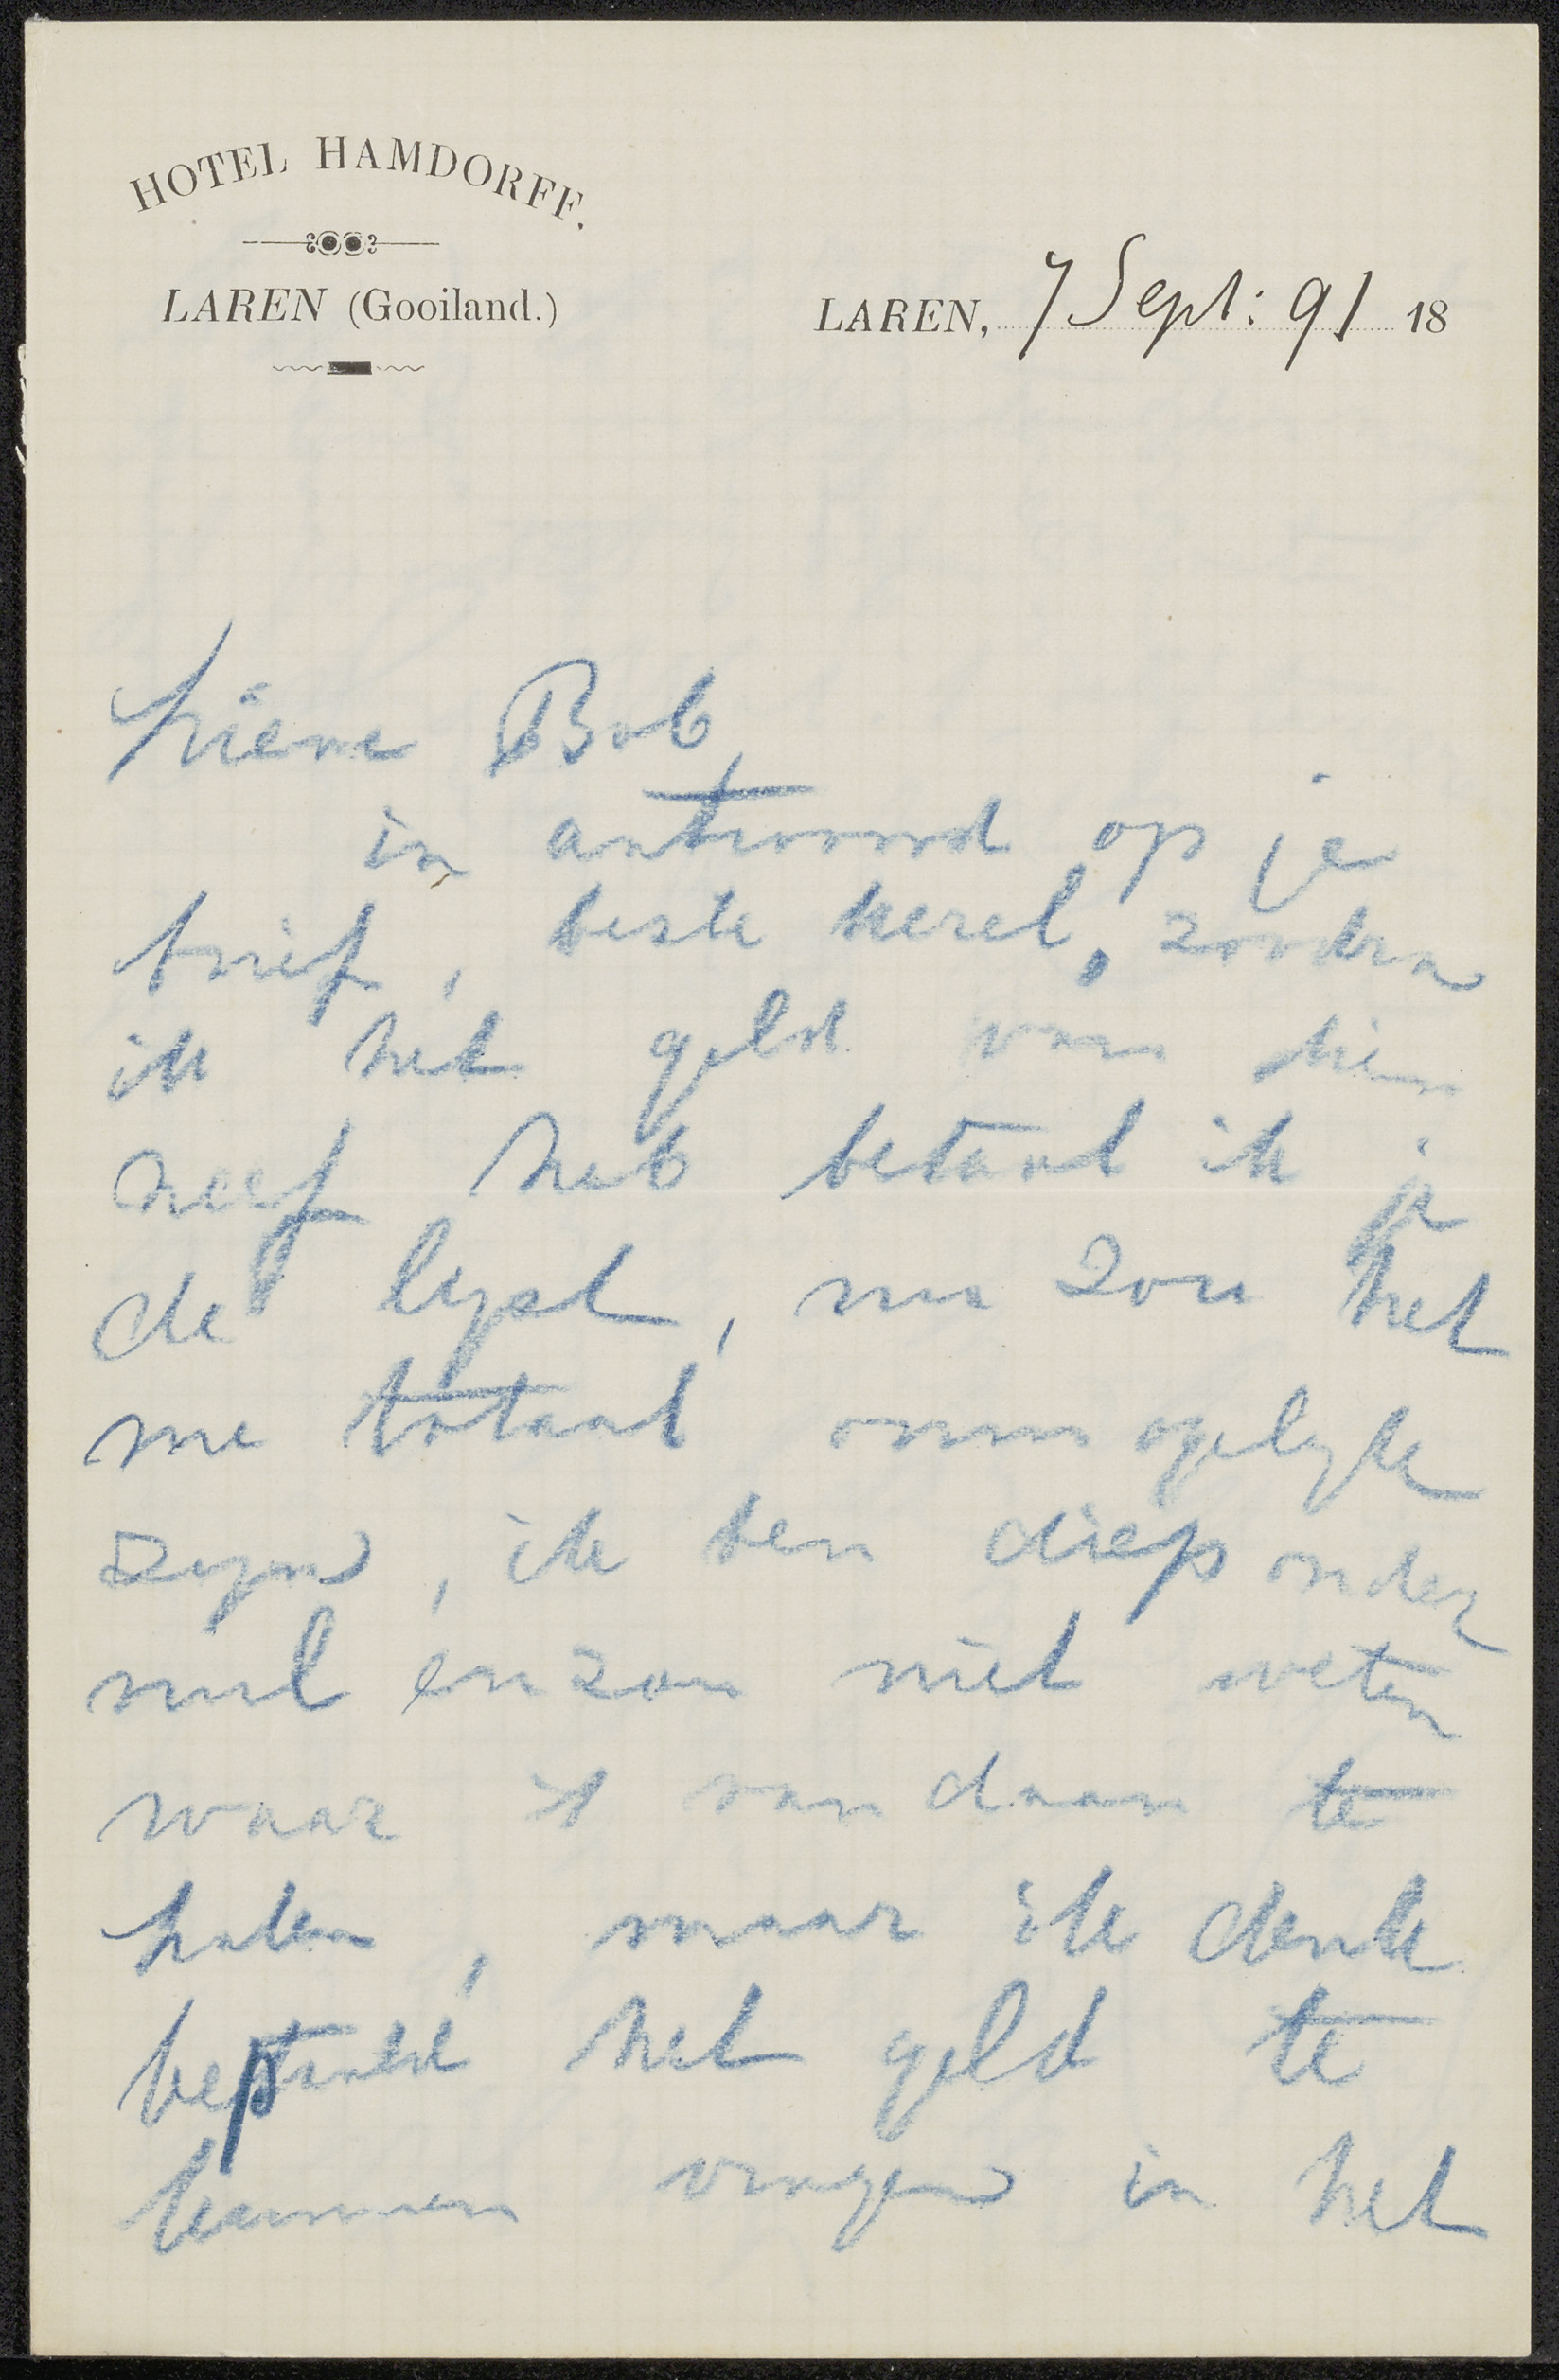 HOTEL HAMDORFF.
LAREN (Gooiland.)
LAREN, 7 Sept: 91 18
Lieve Bob,
in antwoord op je
brief, beste kerel, zoodra
ik het geld van
neef heb betaal ik je
de lijst, nu zou het
me totaal onmogelijk
zijn, ik ben diep onder
nul en zou niet weten
waar 't van daan te
halen, maar ik denk
bepaald het geld te
kunnen vragen in het